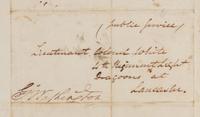 (Public Service)
Lieutenant Colonel White
4th Regiment Light
Dragoons at
Lancaster.
Go: Washington